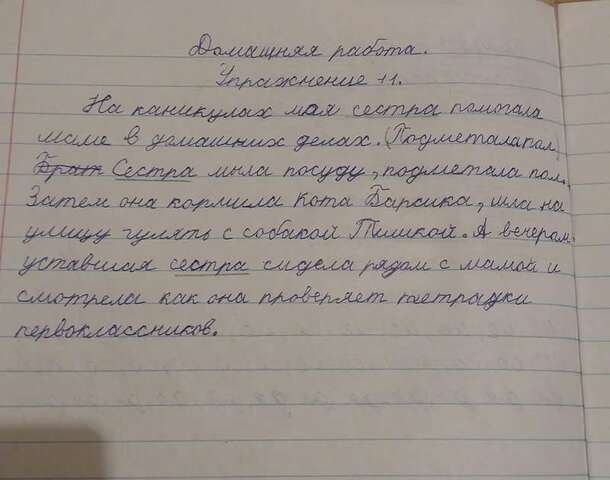 Домашняя работа.
Упражнение 11.
На каникулах моя сестра помогала
маме в домашних делах. (Подметала пол)
Брат Сестра мыла посуду, подметала пол.
Затем она кормила Кота Барсика, шла на
улицу гулять с собакой Тишкой. А вечером
уставшая сестра сидела рядом с мамой и
смотрела как она проверяет тетрадки
первоклассников.